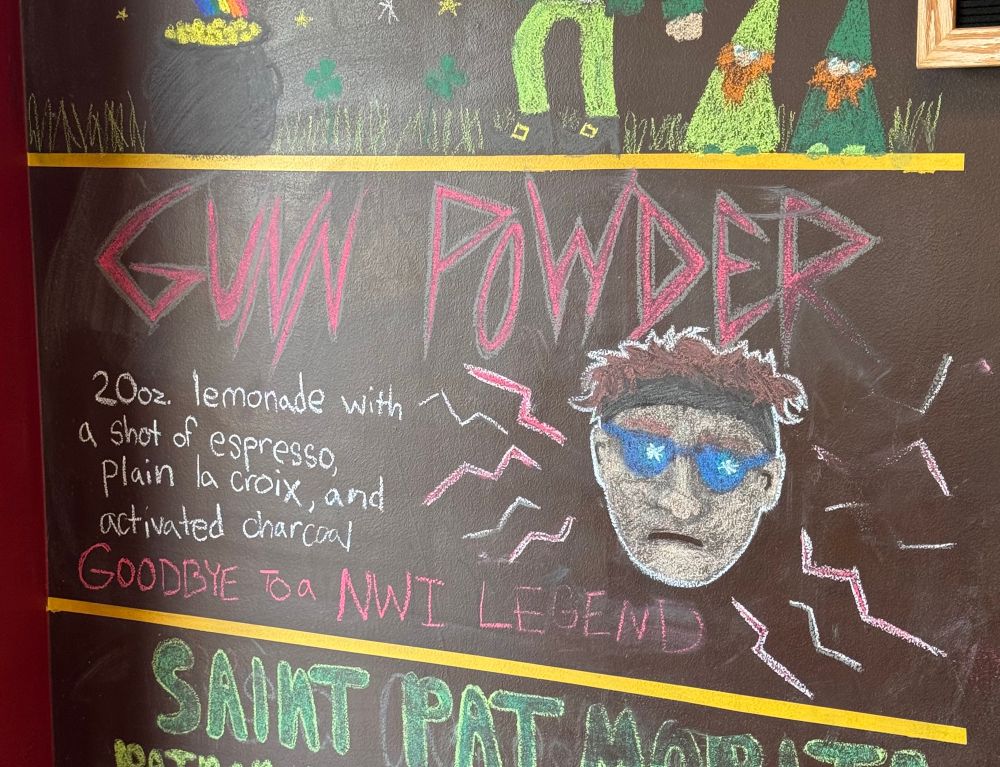 GUNN POWDER
20oz. lemonade with
a shot of espresso,
plain la croix, and
activated charcoal
GOODBYE To a NWI LEGEND
SAINT PAT MORATA